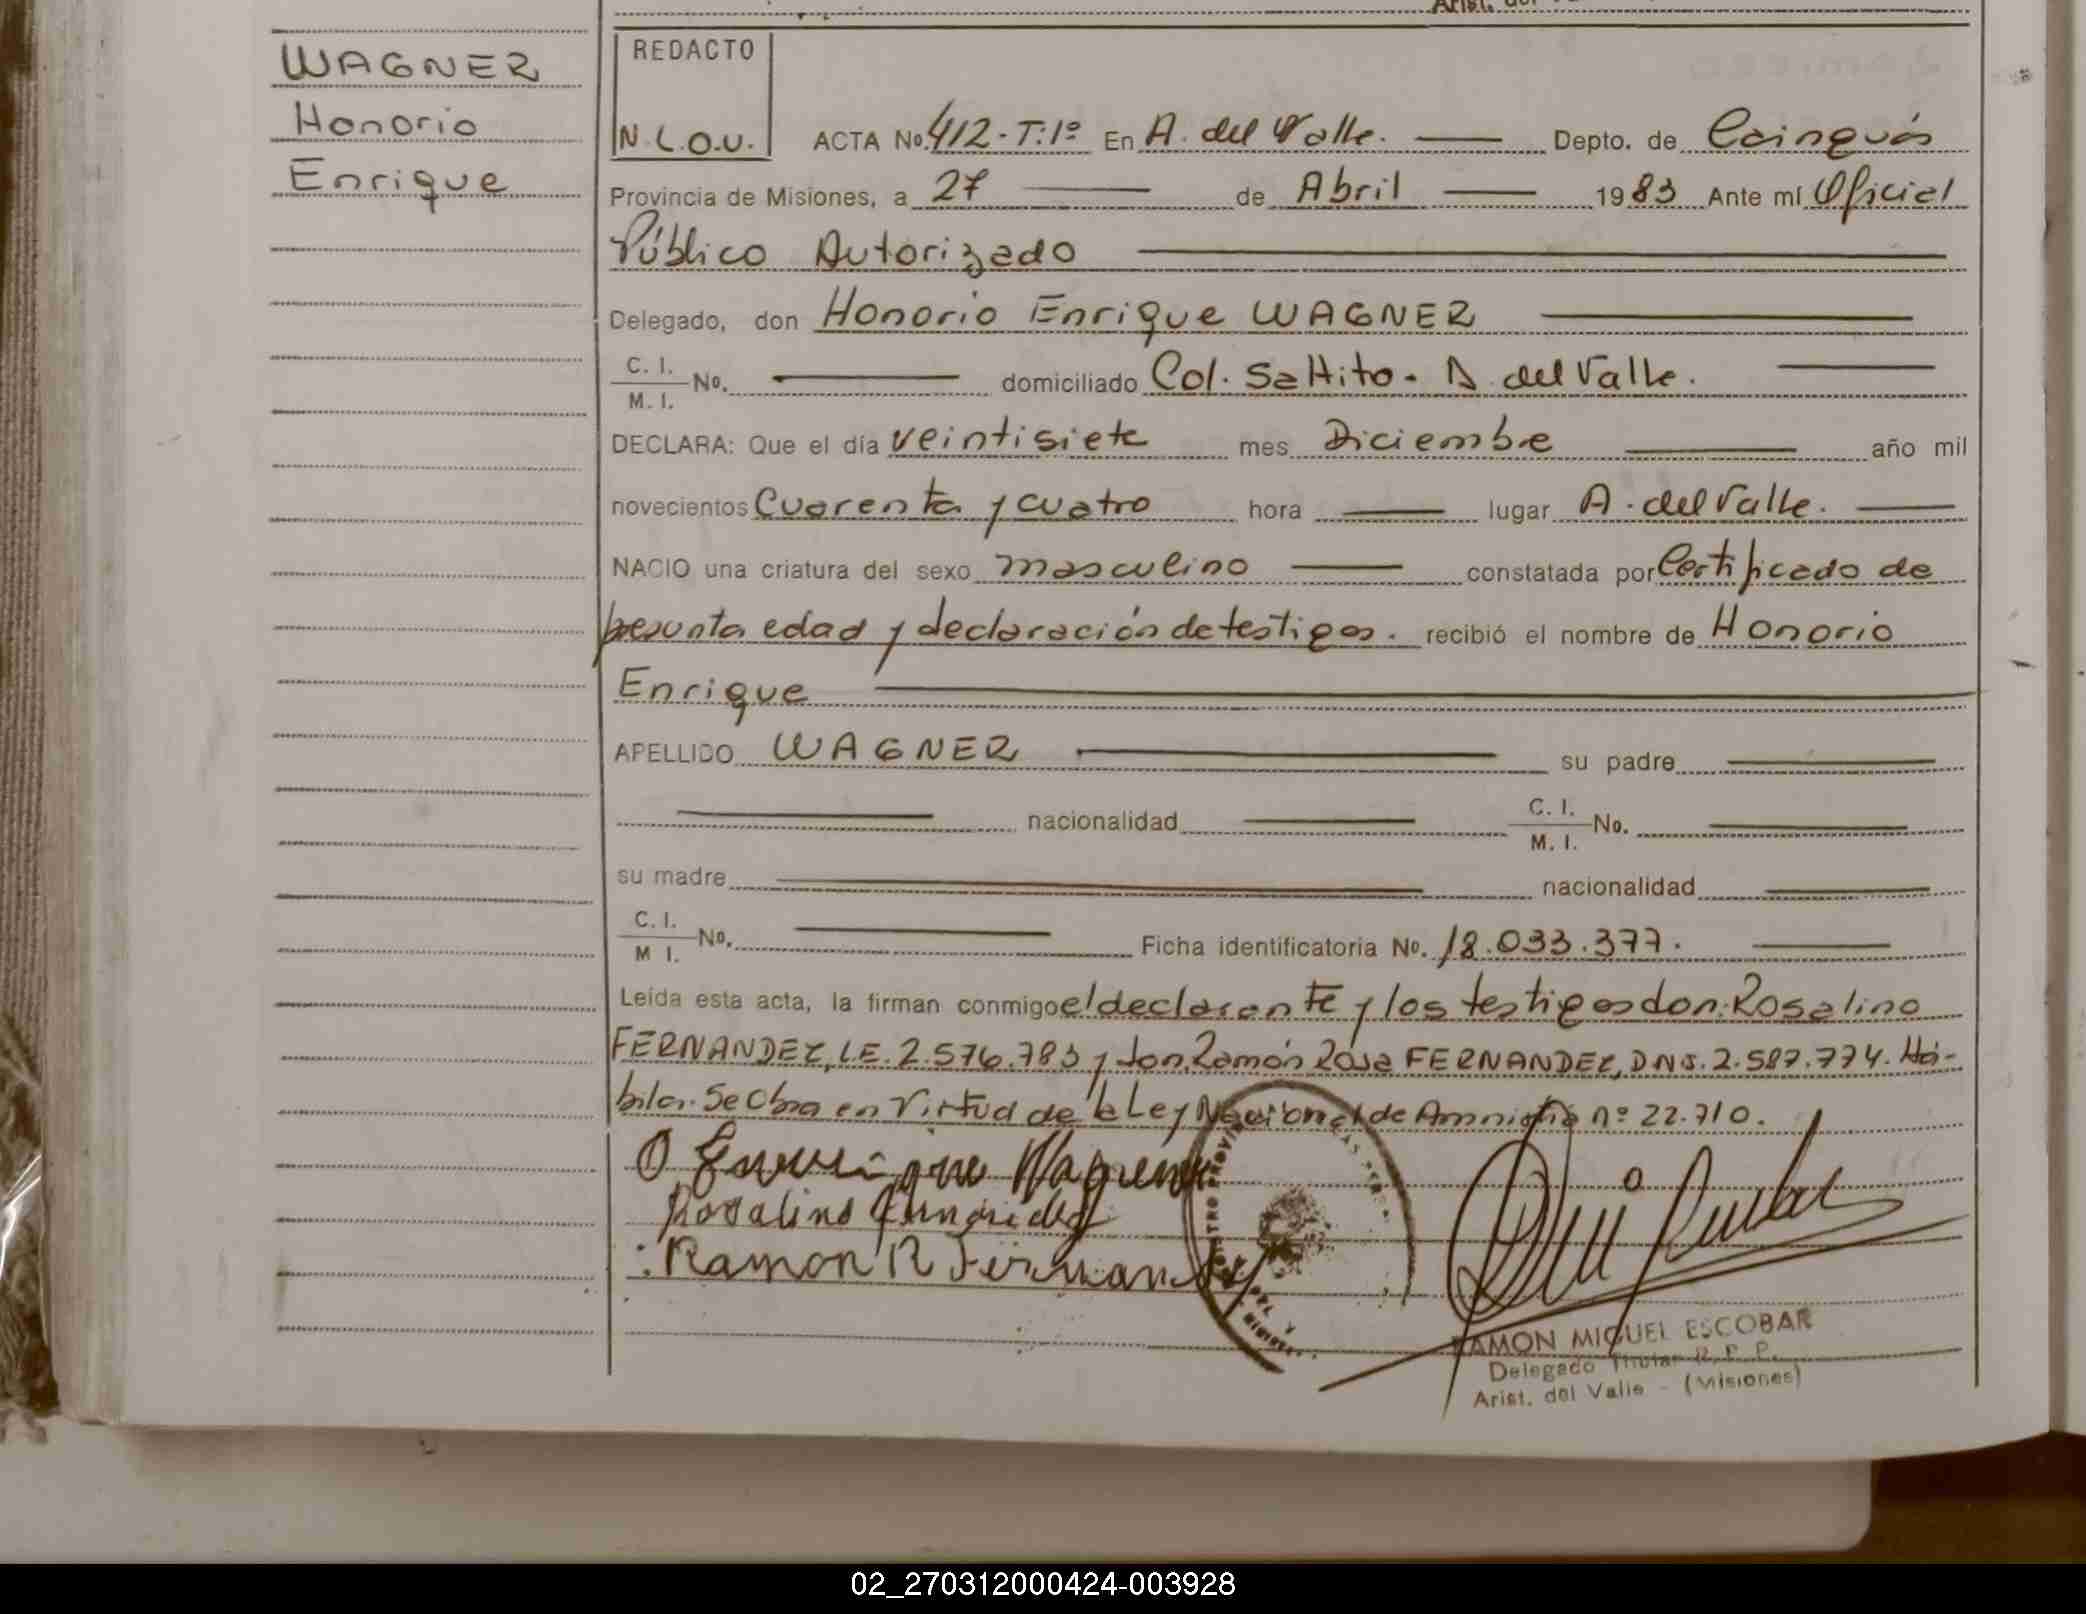 WAGNER
Honorio
Enrique
REDACTO
N.L.O.U.
ACTA No. 412-T:1º En A. del Valle. Depto. de Cainguás
Provincia de Misiones, a 27 de Abril 1983 Ante mí Oficial
Público Autorizado
Delegado, don Honorio Enrique WAGNER
C. I.
M. I. No. domiciliado Col. Saltito. A. del Valle.
DECLARA: Que el día veintisiete mes Diciembre año mil
novecientos Cuarenta y cuatro hora lugar A. del Valle.
NACIO una criatura del sexo masculino constatada por Certificado de
presunta edad y declaración de testigos. recibió el nombre de Honorio
Enrique
APELLIDO WAGNER su padre
nacionalidad C. I.
M. I. No.
su madre nacionalidad
C. I.
M I. No. Ficha identificatoria No. 18.033.377.
Leída esta acta, la firman conmigo el declarante y los testigos don: Rosalino
FERNANDEZ, L.E. 2.576.783 y don Ramón Rosa FERNANDEZ, DNI. 2.587.774. Há-
biles. Se Obra en Virtud de la Ley Nacional de Amnistía nº 22.710.
O Enrrique Wagner
Rosalino Fernandez
Ramon R Fernandez
RAMON MIGUEL ESCOBAR
Delegado Titular R. P. P.
Arist. del Valle - (Misiones)
02_270312000424-003928